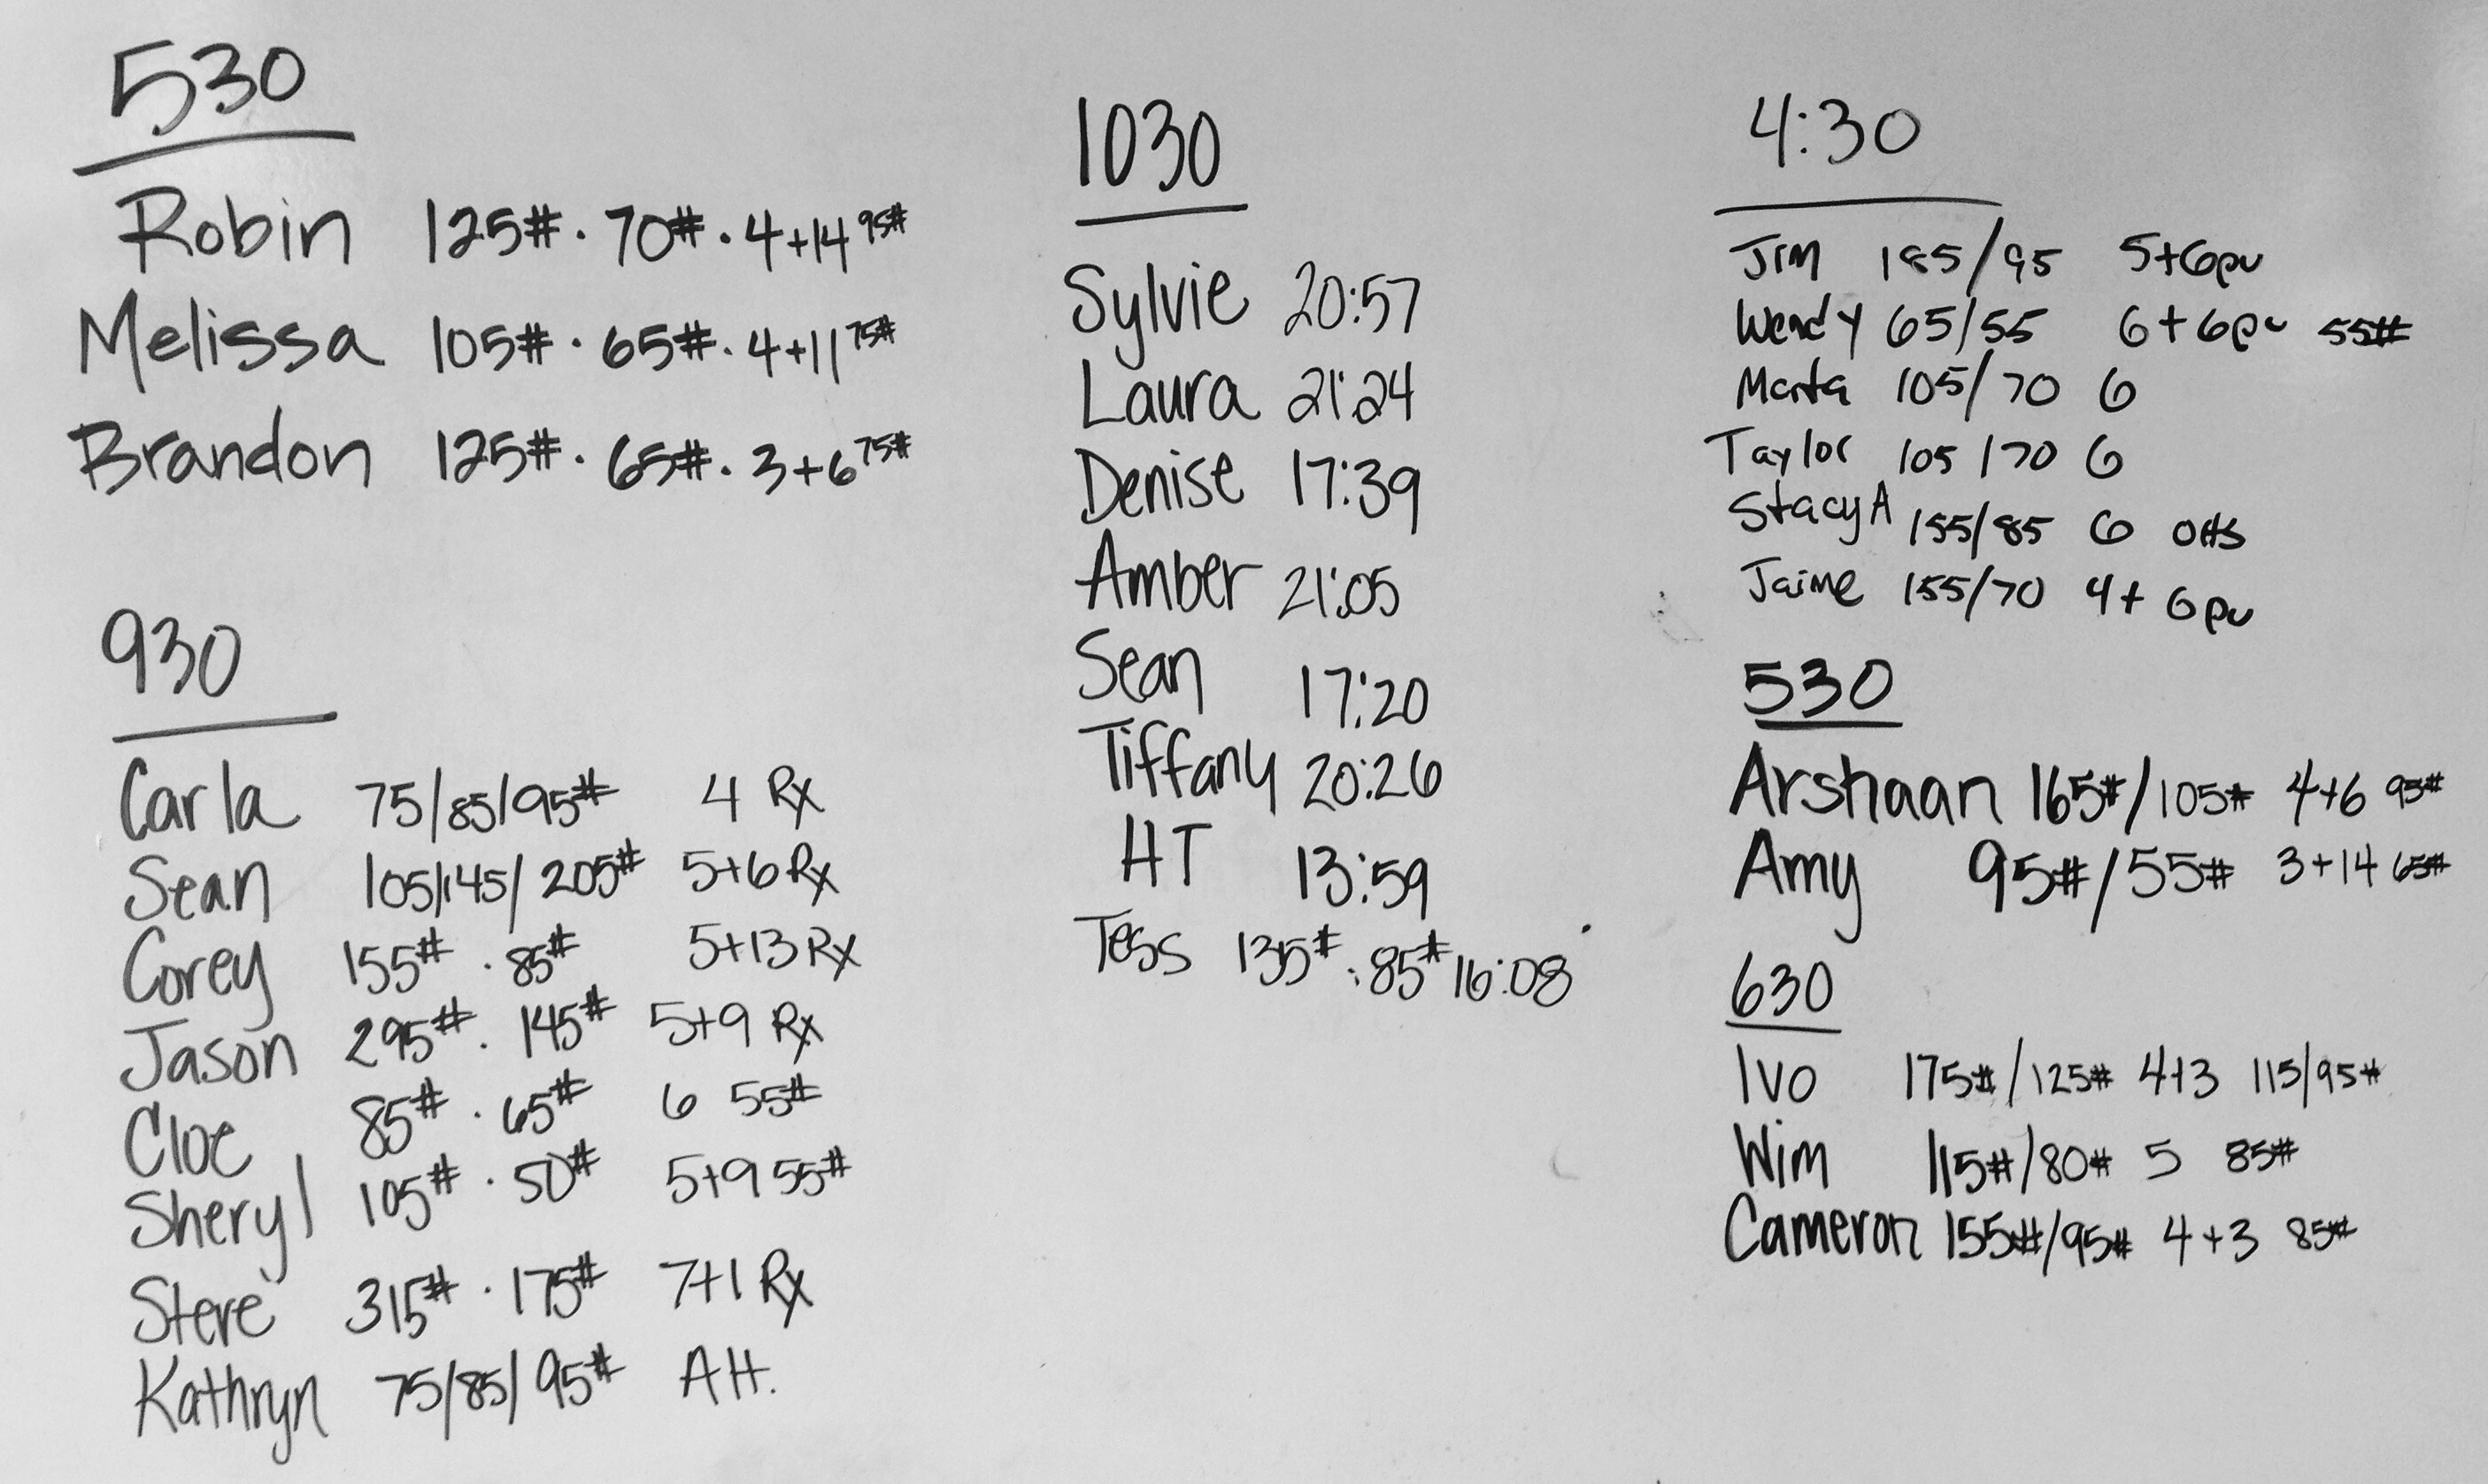 530
Robin 125# · 70# · 4+14 95#
Melissa 105# · 65# · 4+11 75#
Brandon 125# · 65# · 3+6 75#
930
Carla 75/85/95# 4 Rx
Sean 105/145/205# 5+6 Rx
Corey 155# · 85# 5+13 Rx
Jason 295# · 145# 5+9 Rx
Cloe 85# · 65# 6 55#
Sheryl 105# · 50# 5+9 55#
Steve 315# · 175# 7+1 Rx
Kathryn 75/85/95# AH.
1030
Sylvie 20:57
Laura 21:24
Denise 17:39
Amber 21:05
Sean 17:20
Tiffany 20:26
HT 13:59
Tess 135# · 85# 16:08
4:30
Jim 185/95 5+6pu
Wendy 65/55 6+6pu 55#
Marta 105/70 6
Taylor 105/70 6
Stacy A 155/85 6 OHS
Jaime 155/70 4+6pu
530
Arshaan 165#/105# 4+6 95#
Amy 95#/55# 3+14 65#
630
Ivo 175#/125# 4+3 115/95#
Wim 115#/80# 5 85#
Cameron 155#/95# 4+3 85#